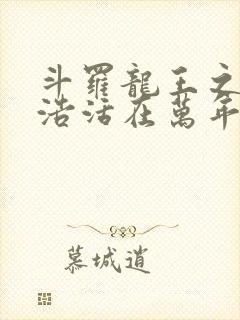 斗羅龍王之
浩活在萬年
慕城逍